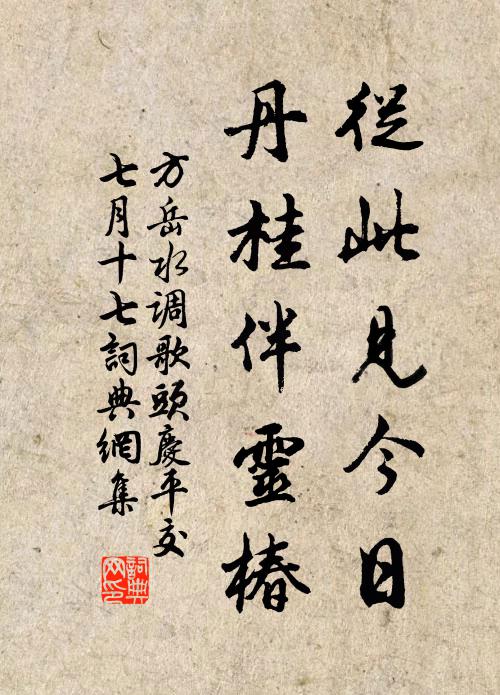 從此見今日
丹桂伴靈椿
方岳水调歌頭慶平交
七月十七詞典網集
詞典
网印